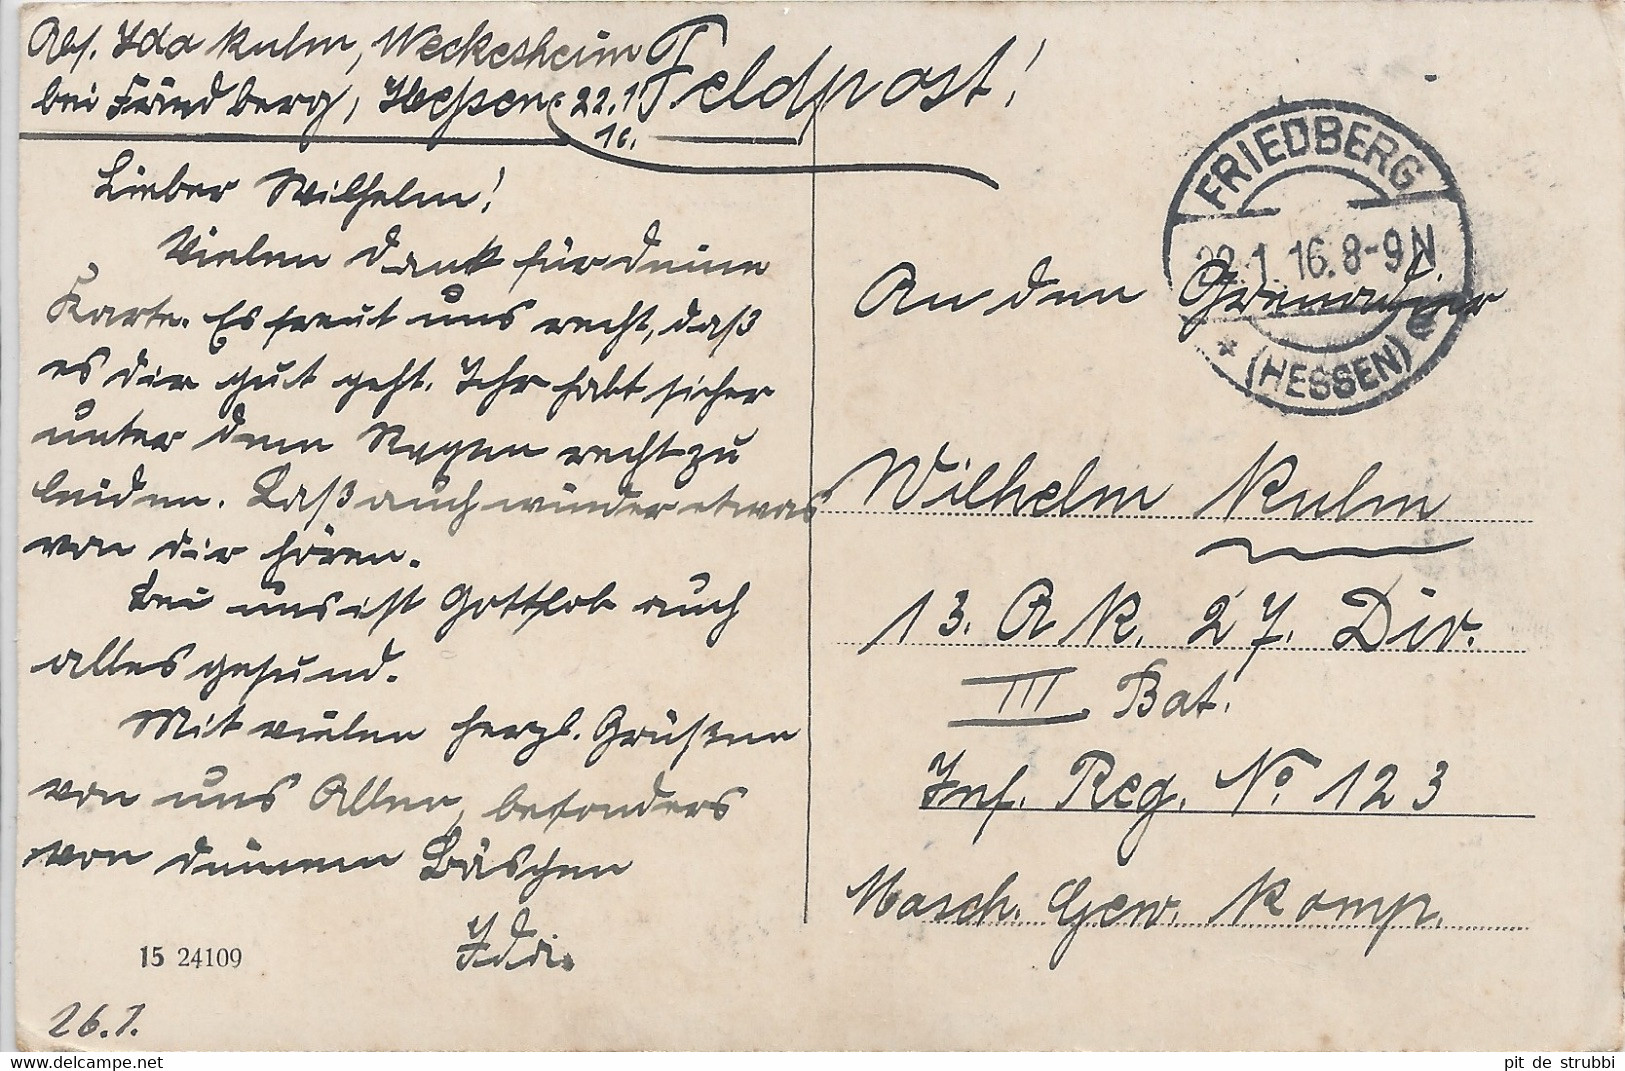 Abs. Ida Kulm, Weckesheim
bei Friedberg, Hessen 22.1
16.
Feldpost!
Lieber Wilhelm!
Vielen Dank für deine
Karte. Es freut uns recht, daß
es dir gut geht. Ihr habt sicher
unter dem Regen recht zu
leiden. Laß auch wieder etwas
von dir hören.
Bei uns ist Gottlob auch
alles gesund.
Mit vielen herzl. Grüßen
von uns Allen, besonders
von deinem Bäschen
Idai.
15 24109
26.1.
FRIEDBERG
22.1.16.8-9N
* (HESSEN) e
An den Grenadier
Wilhelm Kulm
13. A K. 27. Div.
III Bat.
Inf. Reg. No. 123
Masch. Gew. Komp.
pit de strubbi